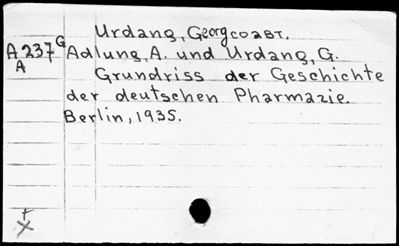 Urdang, Georg соавт.
A237 G Adlung, A. und Urdang, G.
A Grundriss der Geschichte
der deutschen Pharmazie.
Berlin, 1935.